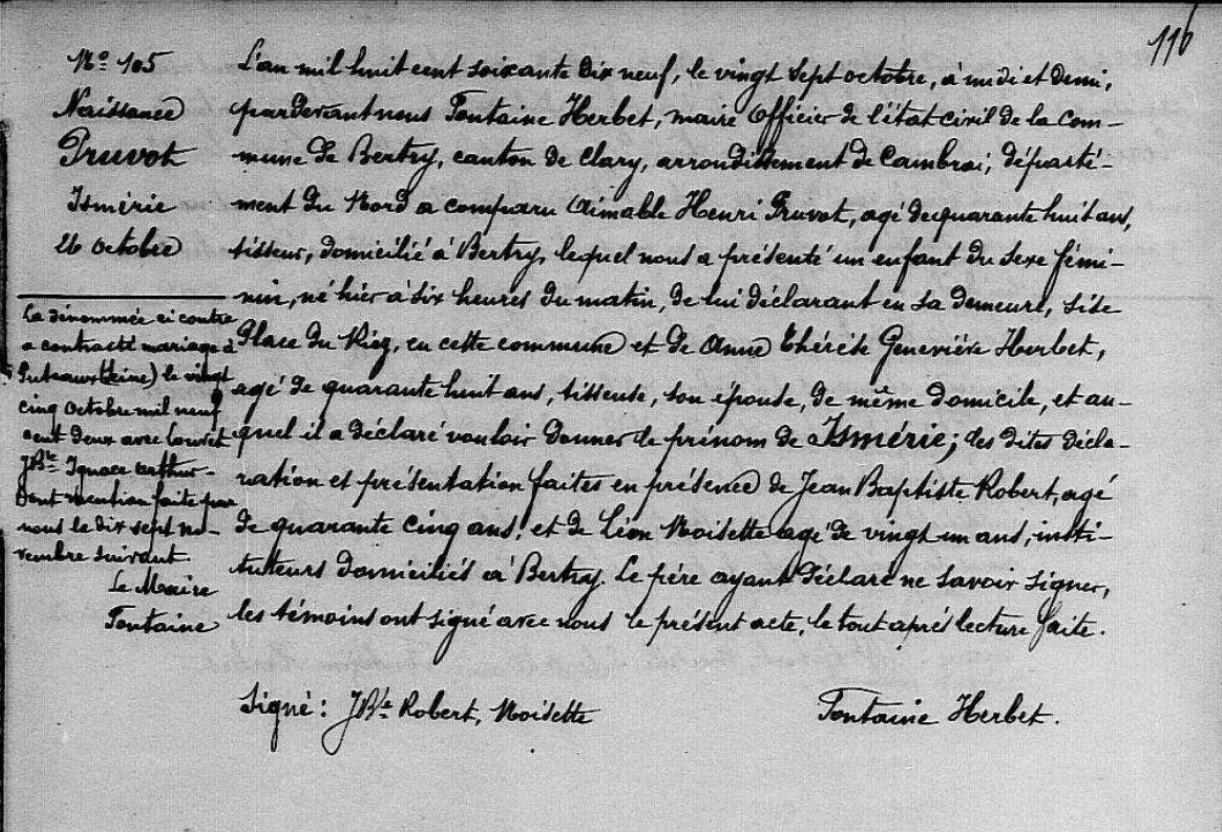 116
N° 105
Naissance
Pruvot
Ismérie
26 octobre
La dénommée ci contre
a contracté mariage à
Puteaux (Seine) le vingt
cinq octobre mil neuf
cent deux avec Louvet
JBte Ignace Arthur -
Dont mention faite par
nous le dix sept no-
vembre suivant.
Le Maire
Fontaine
L'an mil huit cent soixante dix neuf, le vingt sept octobre, à midi et demi,
pardevant nous Fontaine Herbet, maire officier de l'état civil de la Com-
mune de Bertry, canton de Clary, arrondissement de Cambrai, départé-
ment du Nord a comparu Aimable Henri Pruvot, agé de quarante huit ans,
tisseur, domicilié à Bertry, lequel nous a présenté un enfant du sexe fémi-
nin, né hier à six heures du matin, de lui déclarant en sa demeure, sise
Place du Riez, en cette commune et de Anne Thérèse Geneviève Herbet,
agé de quarante huit ans, tisseuse, son épouse, de même domicile, et au-
quel il a déclaré vouloir donner le prénom de Ismérie; les dites décla-
ration et présentation faites en présence de Jean Baptiste Robert, agé
de quarante cinq ans, et de Léon Noisette agé de vingt un ans, insti-
tuteurs domiciliés à Bertry. Le père ayant déclaré ne savoir signer,
les témoins ont signé avec nous le présent acte, le tout aprés lecture faite.
Signé: JBte Robert, Noisette
Fontaine Herbet.